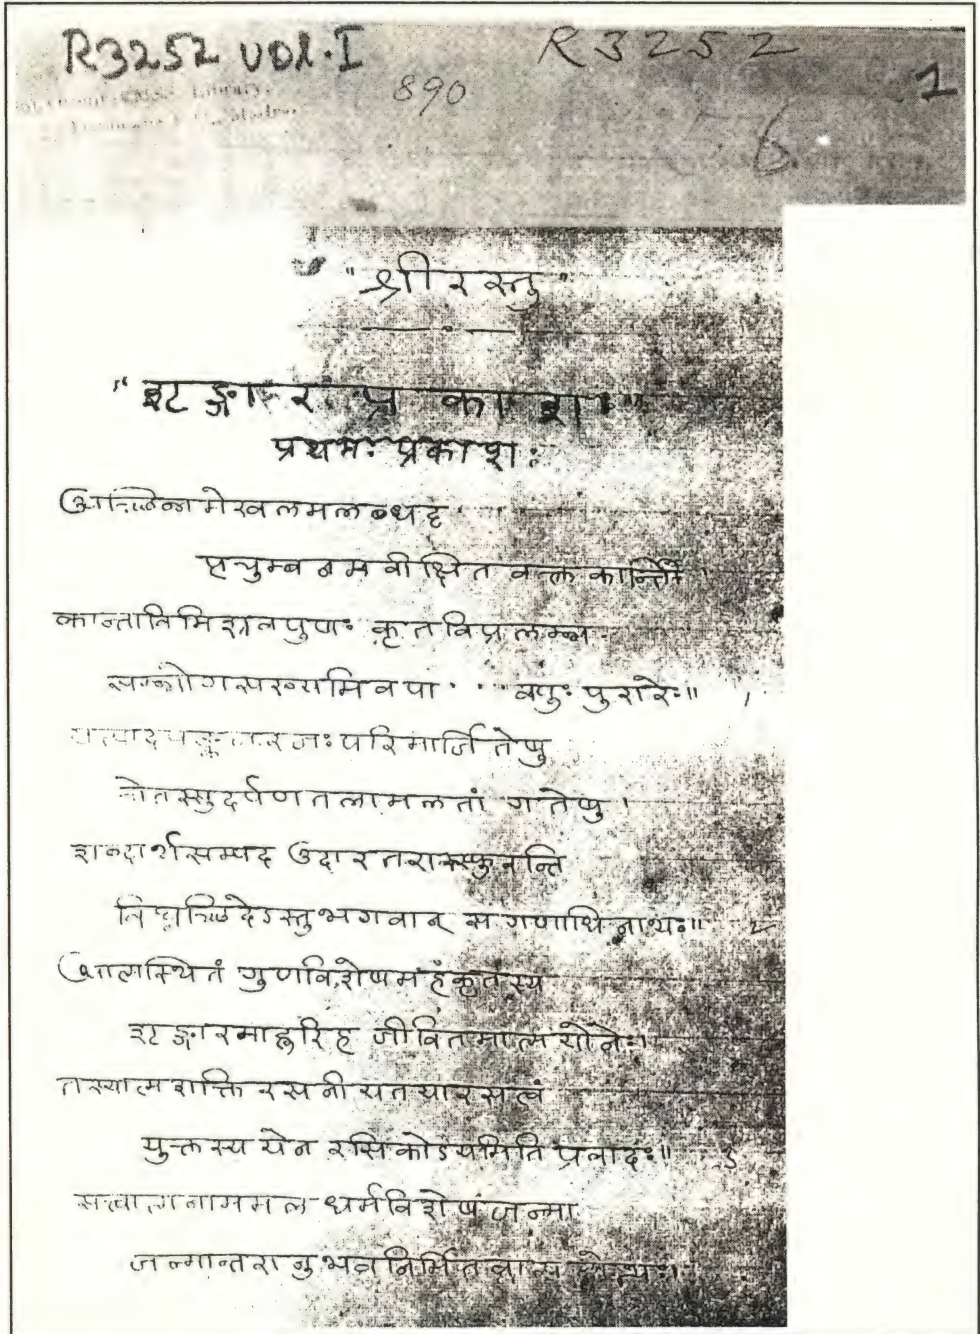 R3252 VOL.I R3252
890 1
6
"श्रीरस्तु"
"शृङ्गारप्रकाशः"
प्रथमः प्रकाशः
आच्छिन्नमेखलमलब्धदृ
चुम्बनमवीक्षितवक्त्रकान्ति
कान्ताविमिश्रवपुषः कृतविप्रलम्भ
सम्भोगसख्यमिव पा वपुः पुरारेः॥ 1
यत्पादपङ्कजरजः परिमार्जितेषु
चेतस्सु दर्पणतलामलतां गतेषु ।
शब्दार्थसम्पद उदारतरास्स्फुरन्ति
विघ्नच्छिदेऽस्तु भगवान् स गणाधिनाथः॥ 2
आत्मस्थितं गुणविशेषमहंकृतस्य
शृङ्गारमाहुरिह जीवितमात्मयोनेः।
तस्यात्मशक्तिरसनीयतया रसत्वं
युक्तस्य येन रसिकोऽयमिति प्रवादः॥ 3
सत्त्वात्मनाममलधर्मविशेषजन्मा
जन्मान्तरानुभवनिर्मित